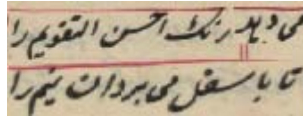 می دهد رنگ احسن التقویم را
تا باسفل می برد این نیم را